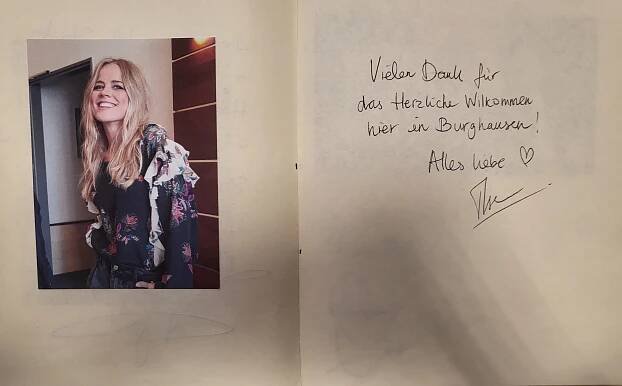 Vielen Dank für
das Herzliche Wilkommen
hier in Burghausen!
Alles liebe ♡